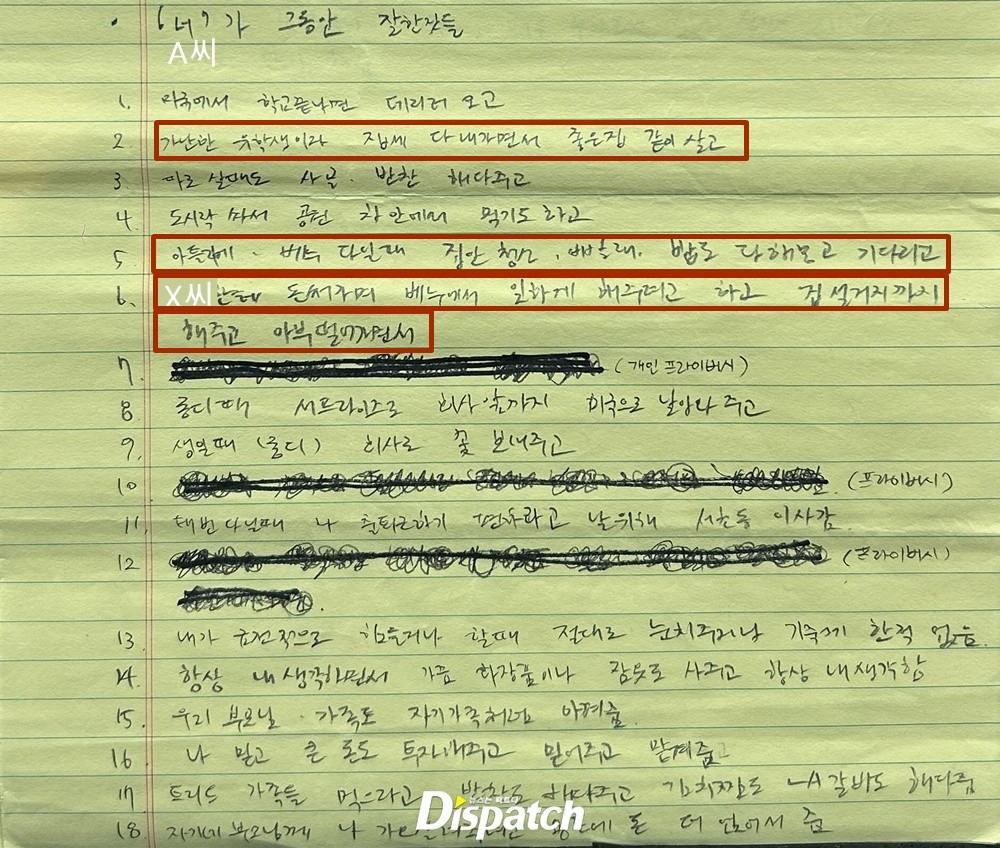 • '너'가 그동안 잘한것들
A씨
1. 미국에서 학교끝나면 데리러 오고
2 가난한 유학생이라 집세 다 내가면서 좋은집 같이 살고
3. 따로 살때도 사골. 반찬 해다주고
4 도시락 싸서 공원 차안에서 먹기도 하고
5 아틀리에. 베누 다닐때 집안 청소, 빨래. 밥도 다해놓고 기다리고
6. X씨한테 돈써가며 베누에서 일하게 해주려고 하고 집 설거지까지
해주고 아부떨어가면서
7. (개인 프라이버시)
8 롱디때 서프라이즈로 회사 앞까지 미국으로 날아와 주고
9. 생일때 (롱디) 회사로 꽃 보내주고
10 (프라이버시)
11. 테번 다닐때 나 출퇴근하기 편하라고 날위해 서초동 이사감
12 (프라이버시)
13. 내가 금전적으로 힘들거나 할때 절대로 눈치주거나 기죽게 한적 없음.
14. 항상 내 생각하면서 가끔 화장품이나 잠옷도 사주고 항상 내생각함
15. 우리 부모님. 가족도 자기가족처럼 아껴줌.
16 나 믿고 큰 돈도 투자해주고 믿어주고 맡겨줌
17 트리드 가족들 먹으라고 반찬도 해다주고 김치찜도 LA갈비도 해다줌
18. 자기네 부모님께 나 돈 더 얹어서 줌
뉴스는 팩트다
Dispatch